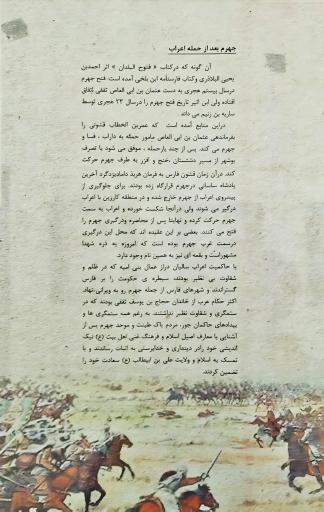 جهرم بعد از حمله اعراب
آن گونه که درکتاب « فتوح البلدان » اثر احمدبن
یحیی البلاذری وکتاب فارسنامه ابن بلخی آمده است فتح جهرم
درسال بیستم هجری به دست عثمان بن ابی العاص ثقفی اتفاق
افتاده ولی ابن اثیر تاریخ فتح جهرم را سال ۲۳ هجری توسط
ساریه بن زنیم می داند
دراین منابع آمده است که عمربن الخطاب قشونی را
بفرماندهی عثمان بن ابی العاص مامور حمله به داراب ، فسا و
جهرم می کند. پس از چند بارحمله، موفق می شود با تصرف
بوشهر از مسیر دشتستان ،خنج و لارو به طرف جهرم حرکت
کند. درآن زمان قشون فارس به فرمان هربد دامادیزدگرد آخرین
پادشاه ساسانی درجهرم قرارگاه زده بودند. برای جلوگیری از
پیشروی اعراب از جهرم خارج شده و در منطقه کارزین با اعراب
درگیر می شوند ولی درآنجا شکست خورده و اعراب به سمت
جهرم حرکت کرده و نهایتا پس از محاصره ودرگیری جهرم را
فتح می کنند. بعضی بر این عقیده اند که محل این درگیری
درسمت غرب جهرم بوده است که امروزه به دره شهدا
مشهوراست و بقعه ای نیز به همین نام وجود دارد.
با حاکمیت اعراب سالیان دراز عمال بنی امیه که در ظلم و
شقاوت بی نظیر بودند، سیطره ی حکومت را بر فارس
گستراندند و شهرهای فارس از جمله جهرم رو به ویرانی نهاد.
اکثر حکام عرب از خاندان حجاج بن یوسف ثقفی بودند که در
ستمگری و شقاوت نظیر نداشتند. به رغم همه ستمگری ها و
بیدادهای حاکمان جور، مردم پاک طینت و موحد جهرم پس از
آشنایی با معارف اصیل اسلام و فرهنگ غنی اهل بیت (ع) نیک
اندیشی خود رادر دینداری و خداپرستی به اثبات رساندند و با
تمسک به اسلام و ولایت علی بن ابیطالب (ع) سعادت خود را
تضمین کردند.